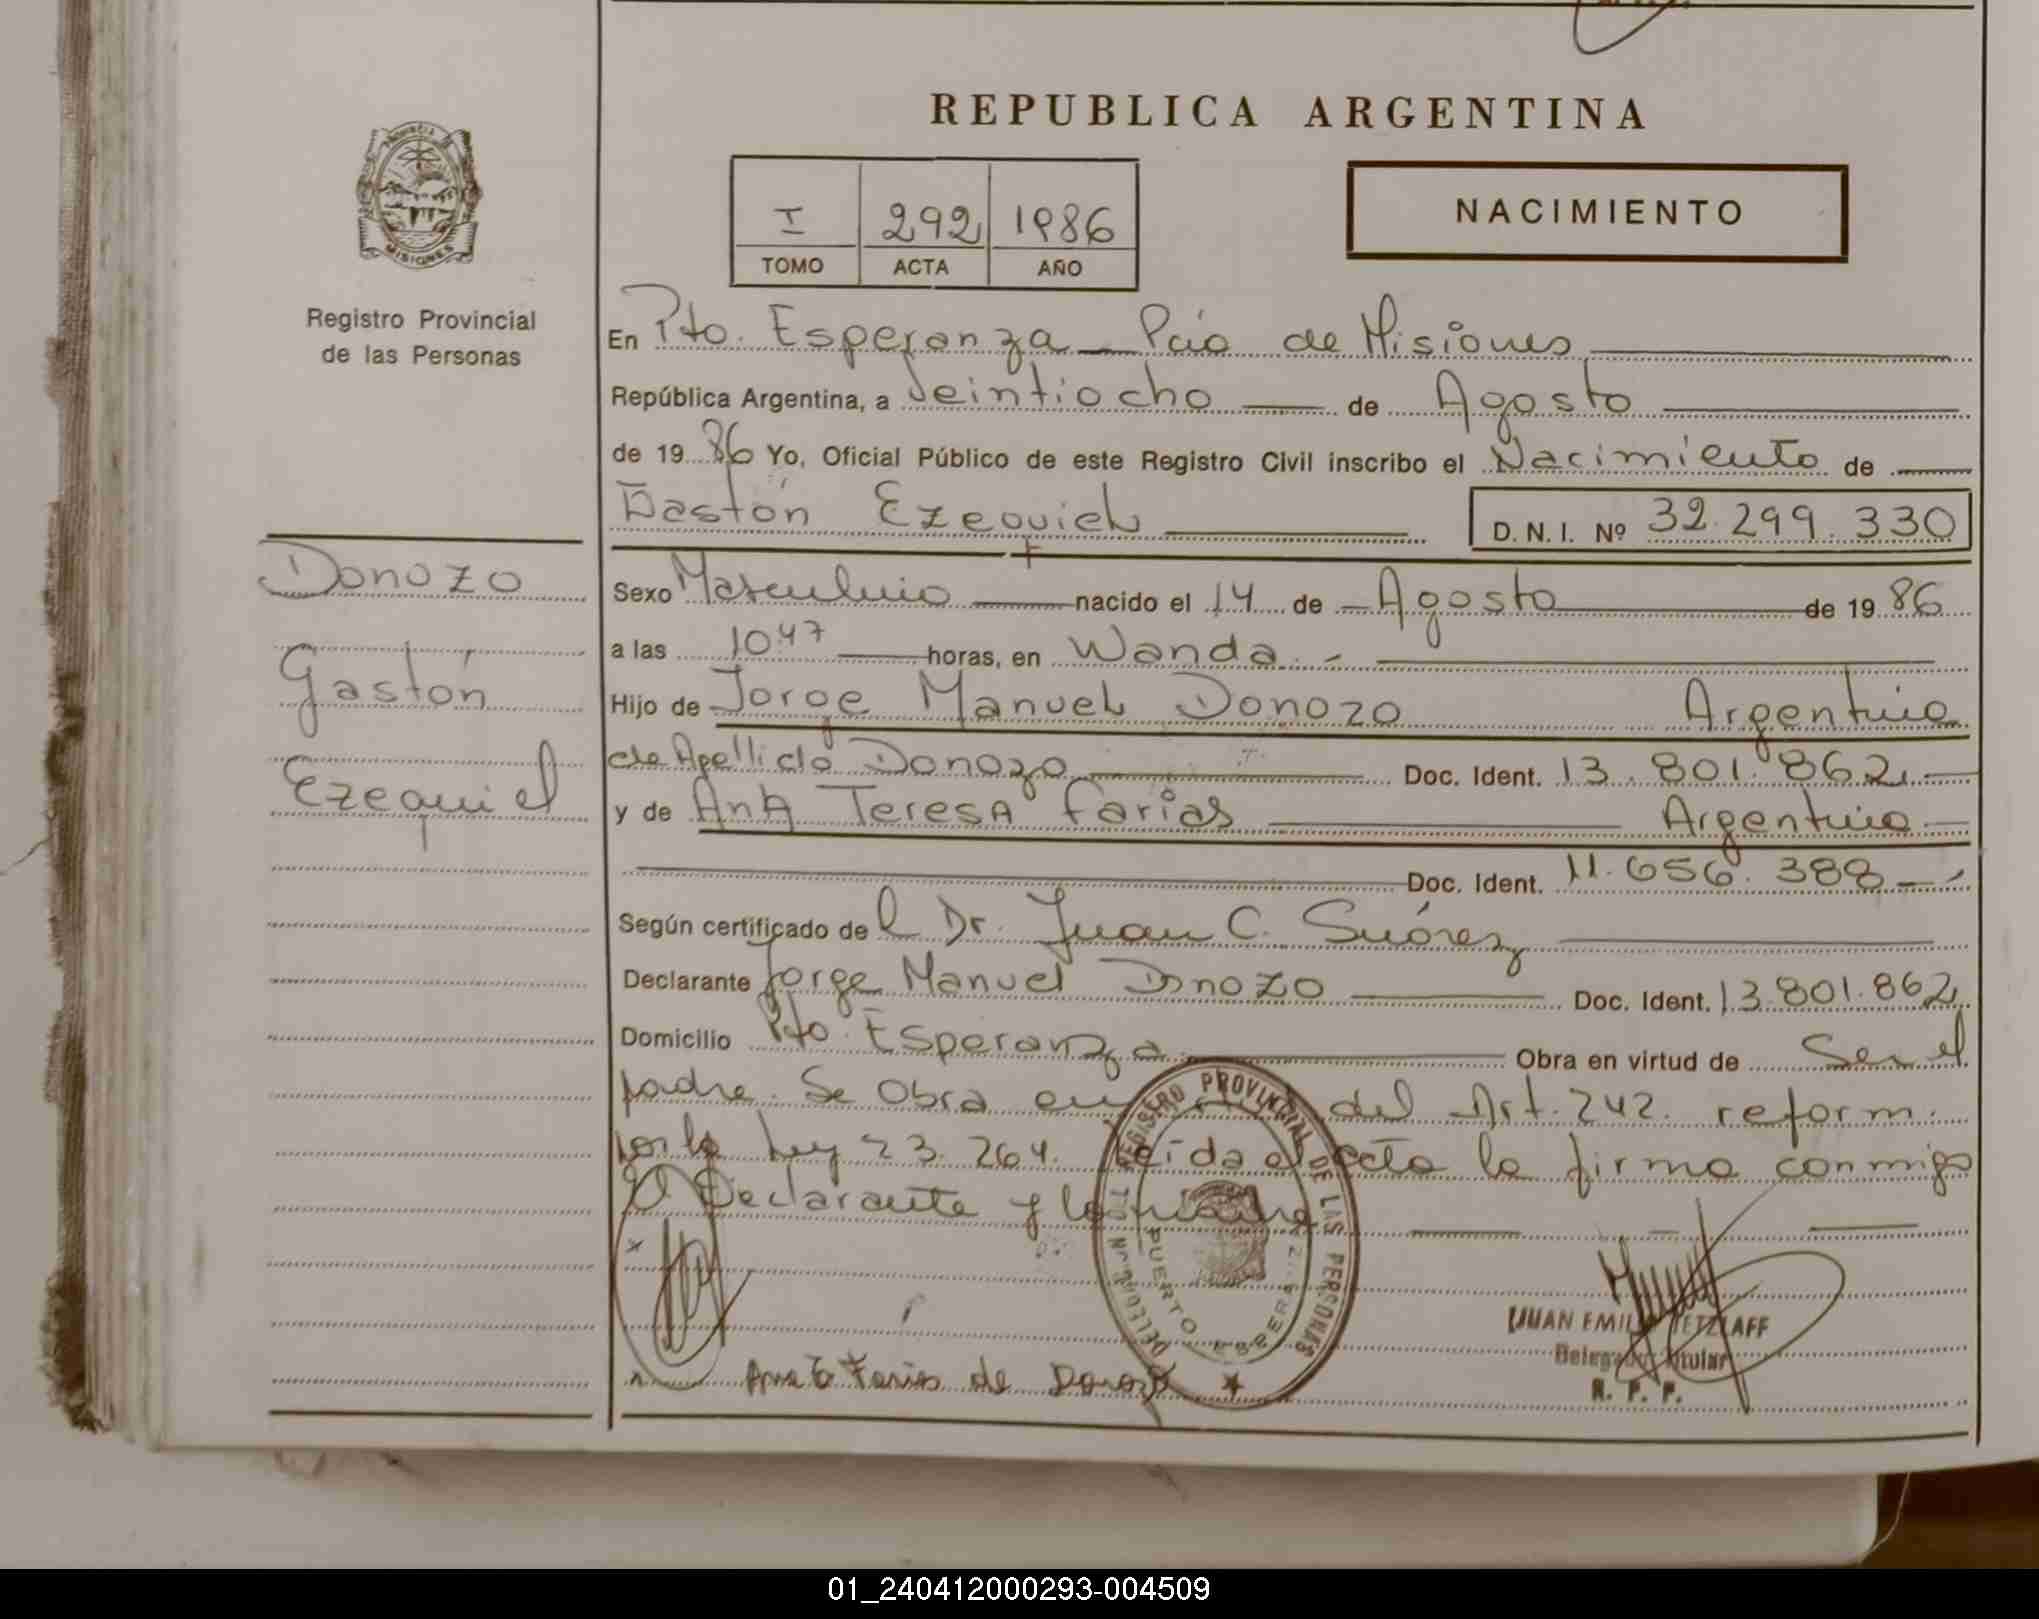 REPUBLICA ARGENTINA
I 292 1986
TOMO ACTA AÑO
NACIMIENTO
PROVINCIA MISIONES
Registro Provincial
de las Personas
En Pto. Esperanza Pcia de Misiones
República Argentina, a Veintiocho de Agosto
de 1986 Yo, Oficial Público de este Registro Civil inscribo el Nacimiento de
Gastón Ezequiel D. N. I. Nº 32.299.330
Donozo
Gastón
Ezequiel
Sexo Masculino nacido el 14 de Agosto de 1986
a las 10.47 horas, en Wanda.
Hijo de Jorge Manuel Donozo Argentino
de Apellido Donozo Doc. Ident. 13.801.862
y de Ana Teresa Farias Argentina
Doc. Ident. 11.656.388
Según certificado del Dr. Juan C. Suárez
Declarante Jorge Manuel Donozo Doc. Ident. 13.801.862
Domicilio Pto. Esperanza Obra en virtud de Ser el
padre. Se Obra en del Art. 242. reform.
por la Ley 23.264. Leída el acta la firma conmigo
el Declarante y la
REGISTRO PROVINCIAL DE LAS PERSONAS
PUERTO ESPERANZA
JUAN EMILIO TETZLAFF
Delegado Titular
R. P. P.
Ana T Farias de Donozo
01_240412000293-004509